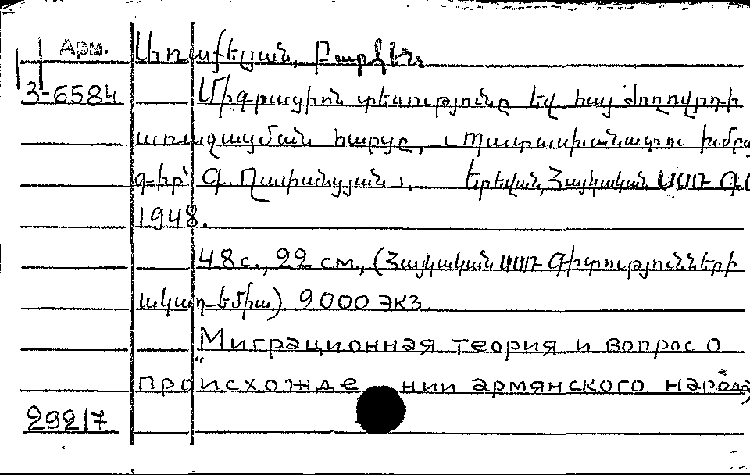 Арм.
Առաքելյան, Բարկեն.
3-6584
Միգրացիոն տեսությունը եվ հայ ժողովրդի
առաջացման հարցը, պատասխանատու խմբա
գիր՝ Գ. Ղափանցյան. Երեվան, Հայկական ՍՍՌ ԳԱ
1948.
48 с., 22 см, (Հայկական ՍՍՌ Գիտությունների
ակադեմիա) 9000 экз.
"Миграционная теория и вопрос о
происхожде нии армянского народа
29217